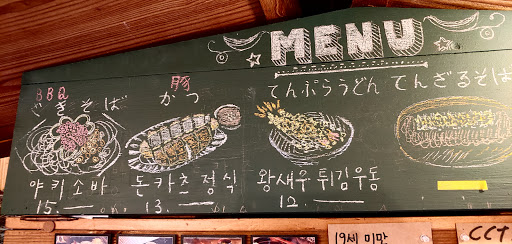 MENU
BBQ
やきそば
야키소바
15.
豚
かつ
돈카츠 정식
13.
てんぷらうどん
왕새우 튀김우동
12.
てんざるそば
19세 미만
CCT